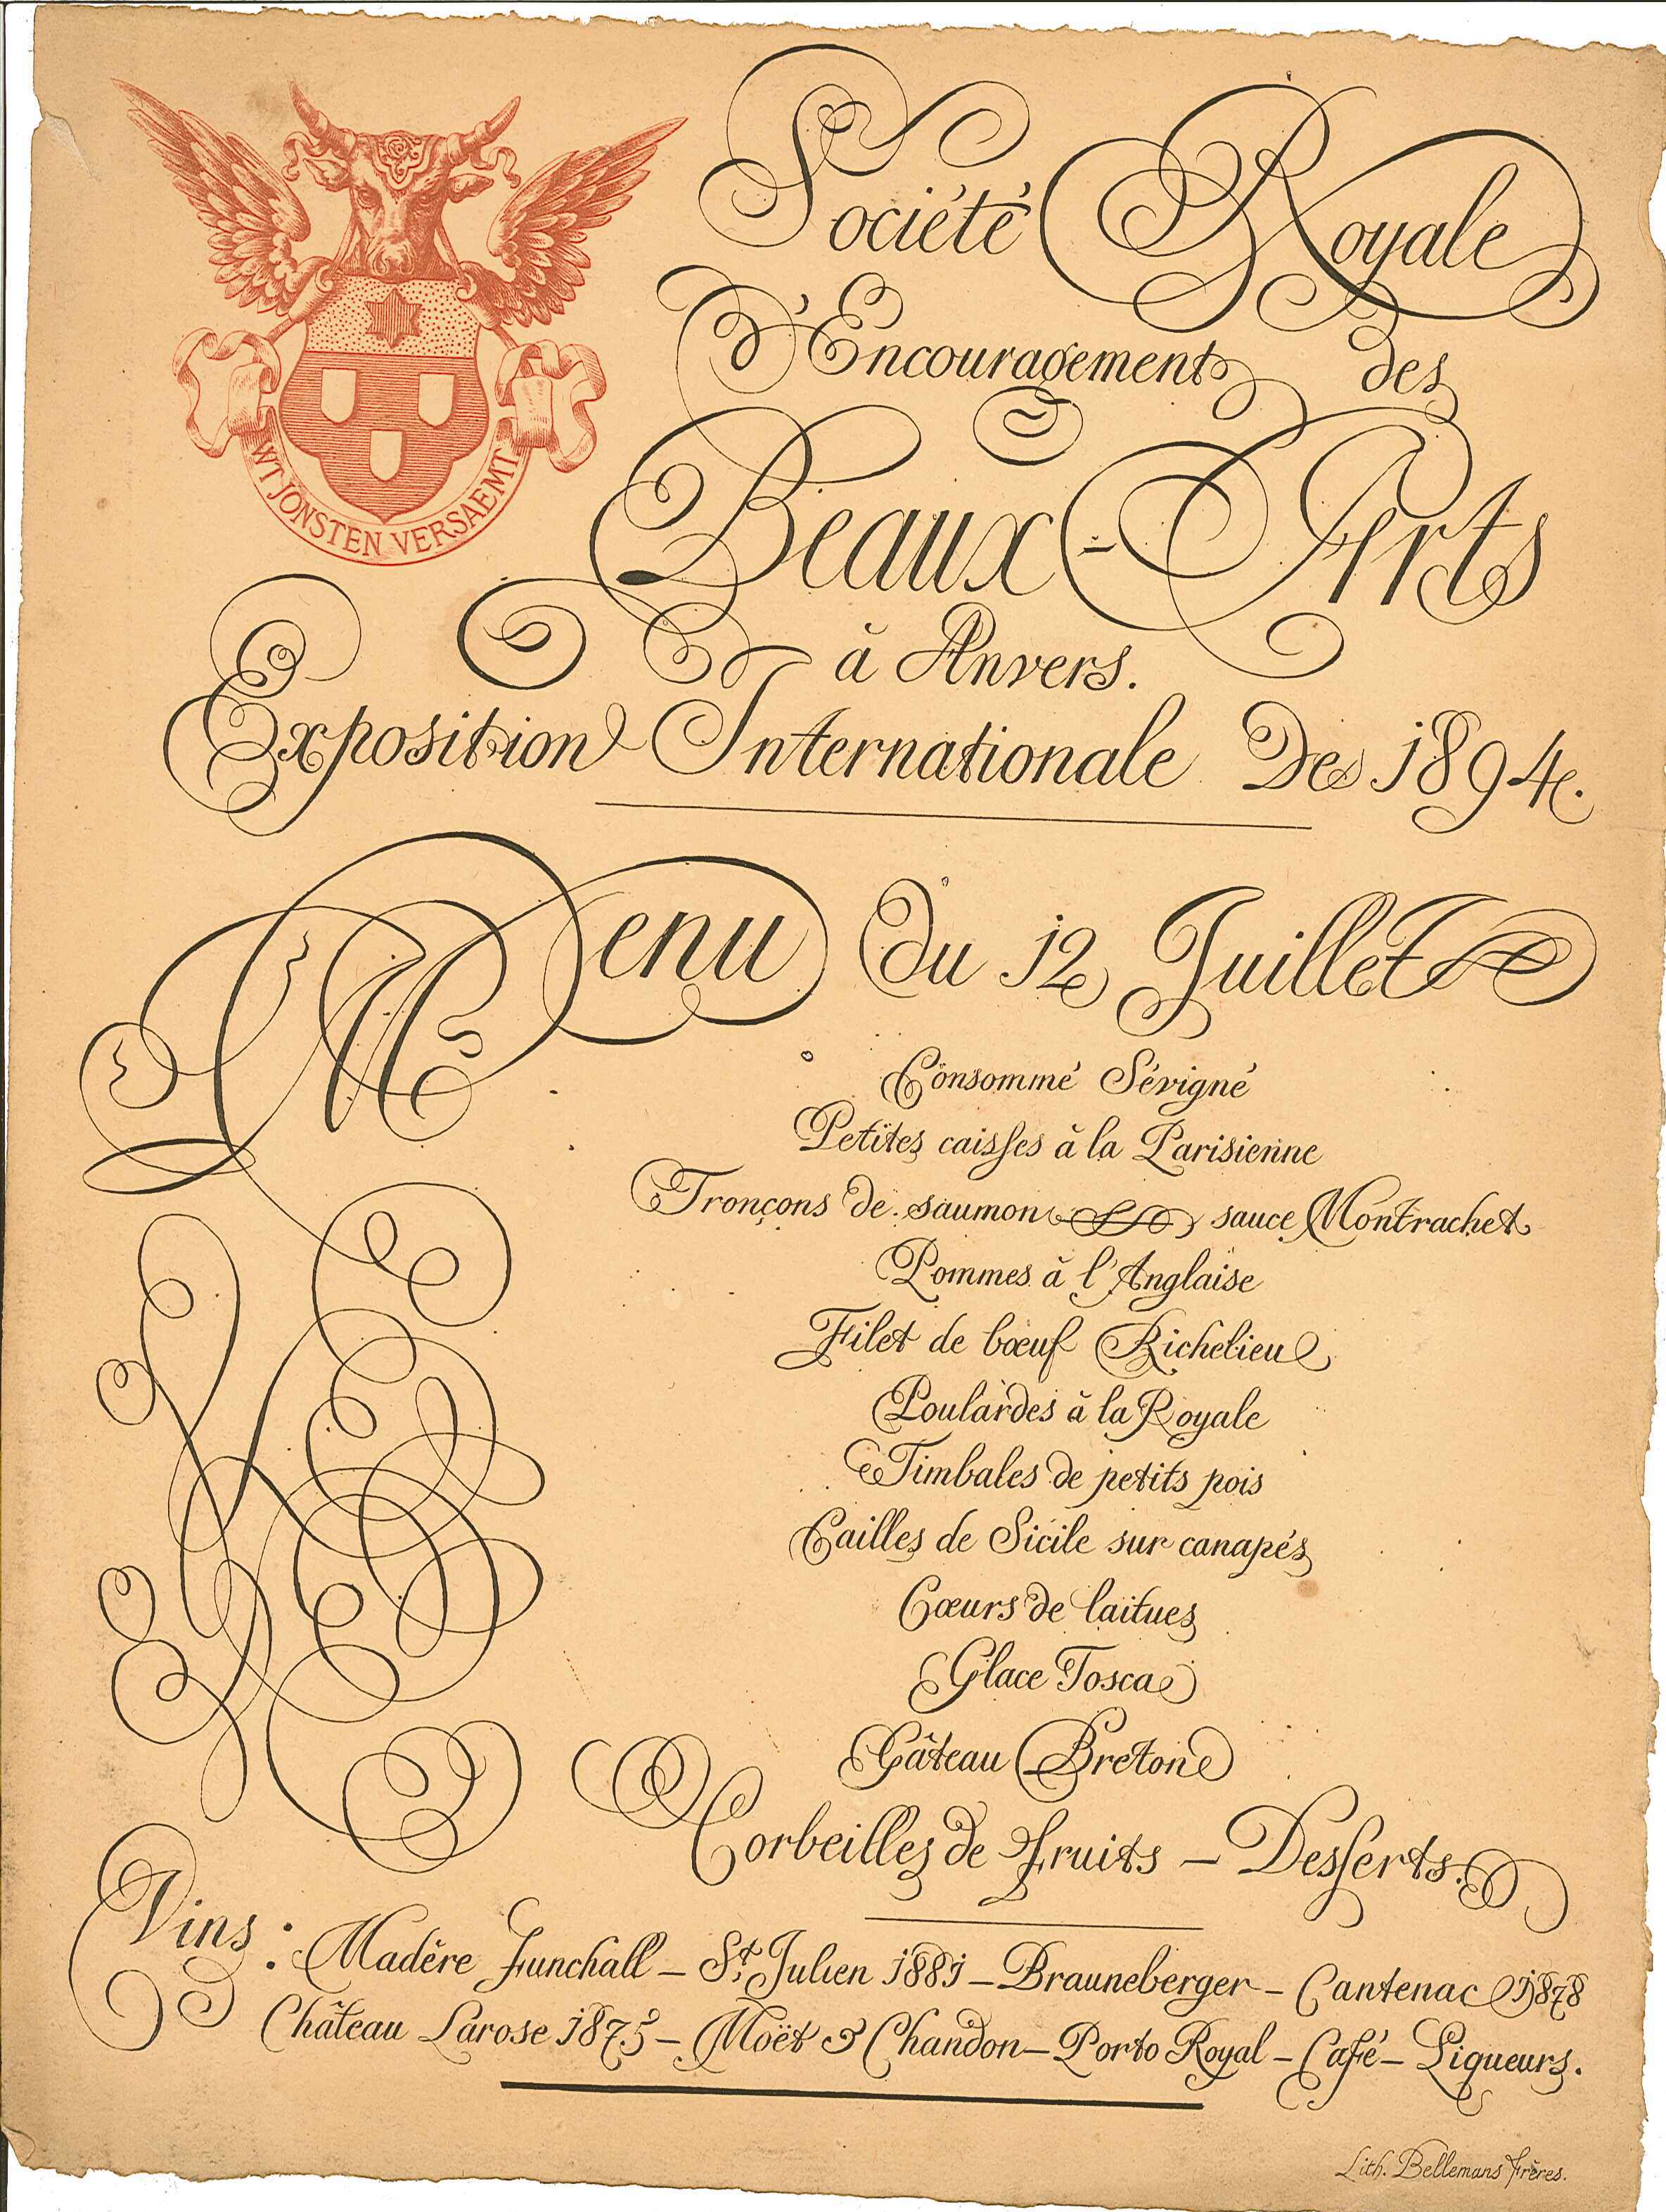 WT JONSTEN VERSAEMT
Société Royale
d'Encouragement des
Beaux-Arts
à Anvers.
Exposition Internationale De 1894.
Menu du 12 Juillet
Consommé Sévigné
Petites caisses à la Parisienne
Tronçons de saumon sauce Montrachet
Pommes à l'Anglaise
Filet de bœuf Richelieu
Poulardes à la Royale
Timbales de petits pois
Cailles de Sicile sur canapés
Cœurs de laitues
Glace Tosca
Gâteau Breton
Corbeilles de fruits – Desserts.
Vins: Madère Funchall – St. Julien 1881 – Brauneberger – Cantenac 1878
Château Larose 1875 – Moët & Chandon – Porto Royal – Café – Liqueurs.
Lith. Bellemans frères.